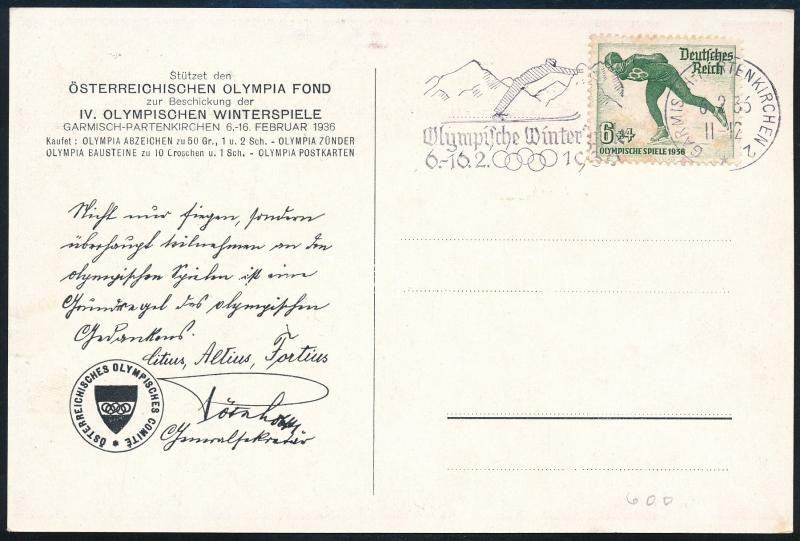 Stützet den
ÖSTERREICHISCHEN OLYMPIA FOND
zur Beschickung der
IV. OLYMPISCHEN WINTERSPIELE
GARMISCH-PARTENKIRCHEN 6.-16. FEBRUAR 1936
Kaufet : OLYMPIA ABZEICHEN zu 50 Gr., 1 u. 2 Sch. - OLYMPIA ZÜNDER
OLYMPIA BAUSTEINE zu 10 Groschen u. 1 Sch. - OLYMPIA POSTKARTEN
Nicht nur siegen, sondern
überhaupt teilnehmen an den
olympischen Spielen ist eine
Grundregel des olympischen
Gedankens.
Citius, Altius, Fortius
Generalsekretär
ÖSTERREICHISCHES OLYMPISCHES COMITÉ *
Olympische Winter
6.-16.2. 1936
Deutsches
Reich
6+4
OLYMPISCHE SPIELE 1936
GARMISCH-PARTENKIRCHEN 2
2.36
11-12
*
600